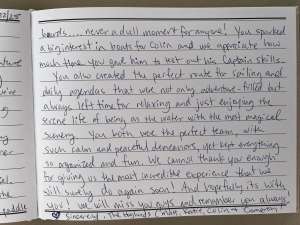 boards.... never a dull moment for anyone! You sparked
a big interest in boats for Colin and we appreciate how
much time you gave him to test out his Captain skills.
You also created the perfect route for sailing and
daily agendas that were not only adventure-filled but
always left time for relaxing and just enjoying the
serene life of being on the water with the most magical
scenery. You both were the perfect team, with
such calm and peaceful demeanors, yet kept everything
so organized and fun. We cannot thank you enough
for giving us the most incredible experience that we
will surely do again soon! And hopefully its with
you! We will miss you guys and remember you always,
Sincerely, The Colin &
paddle